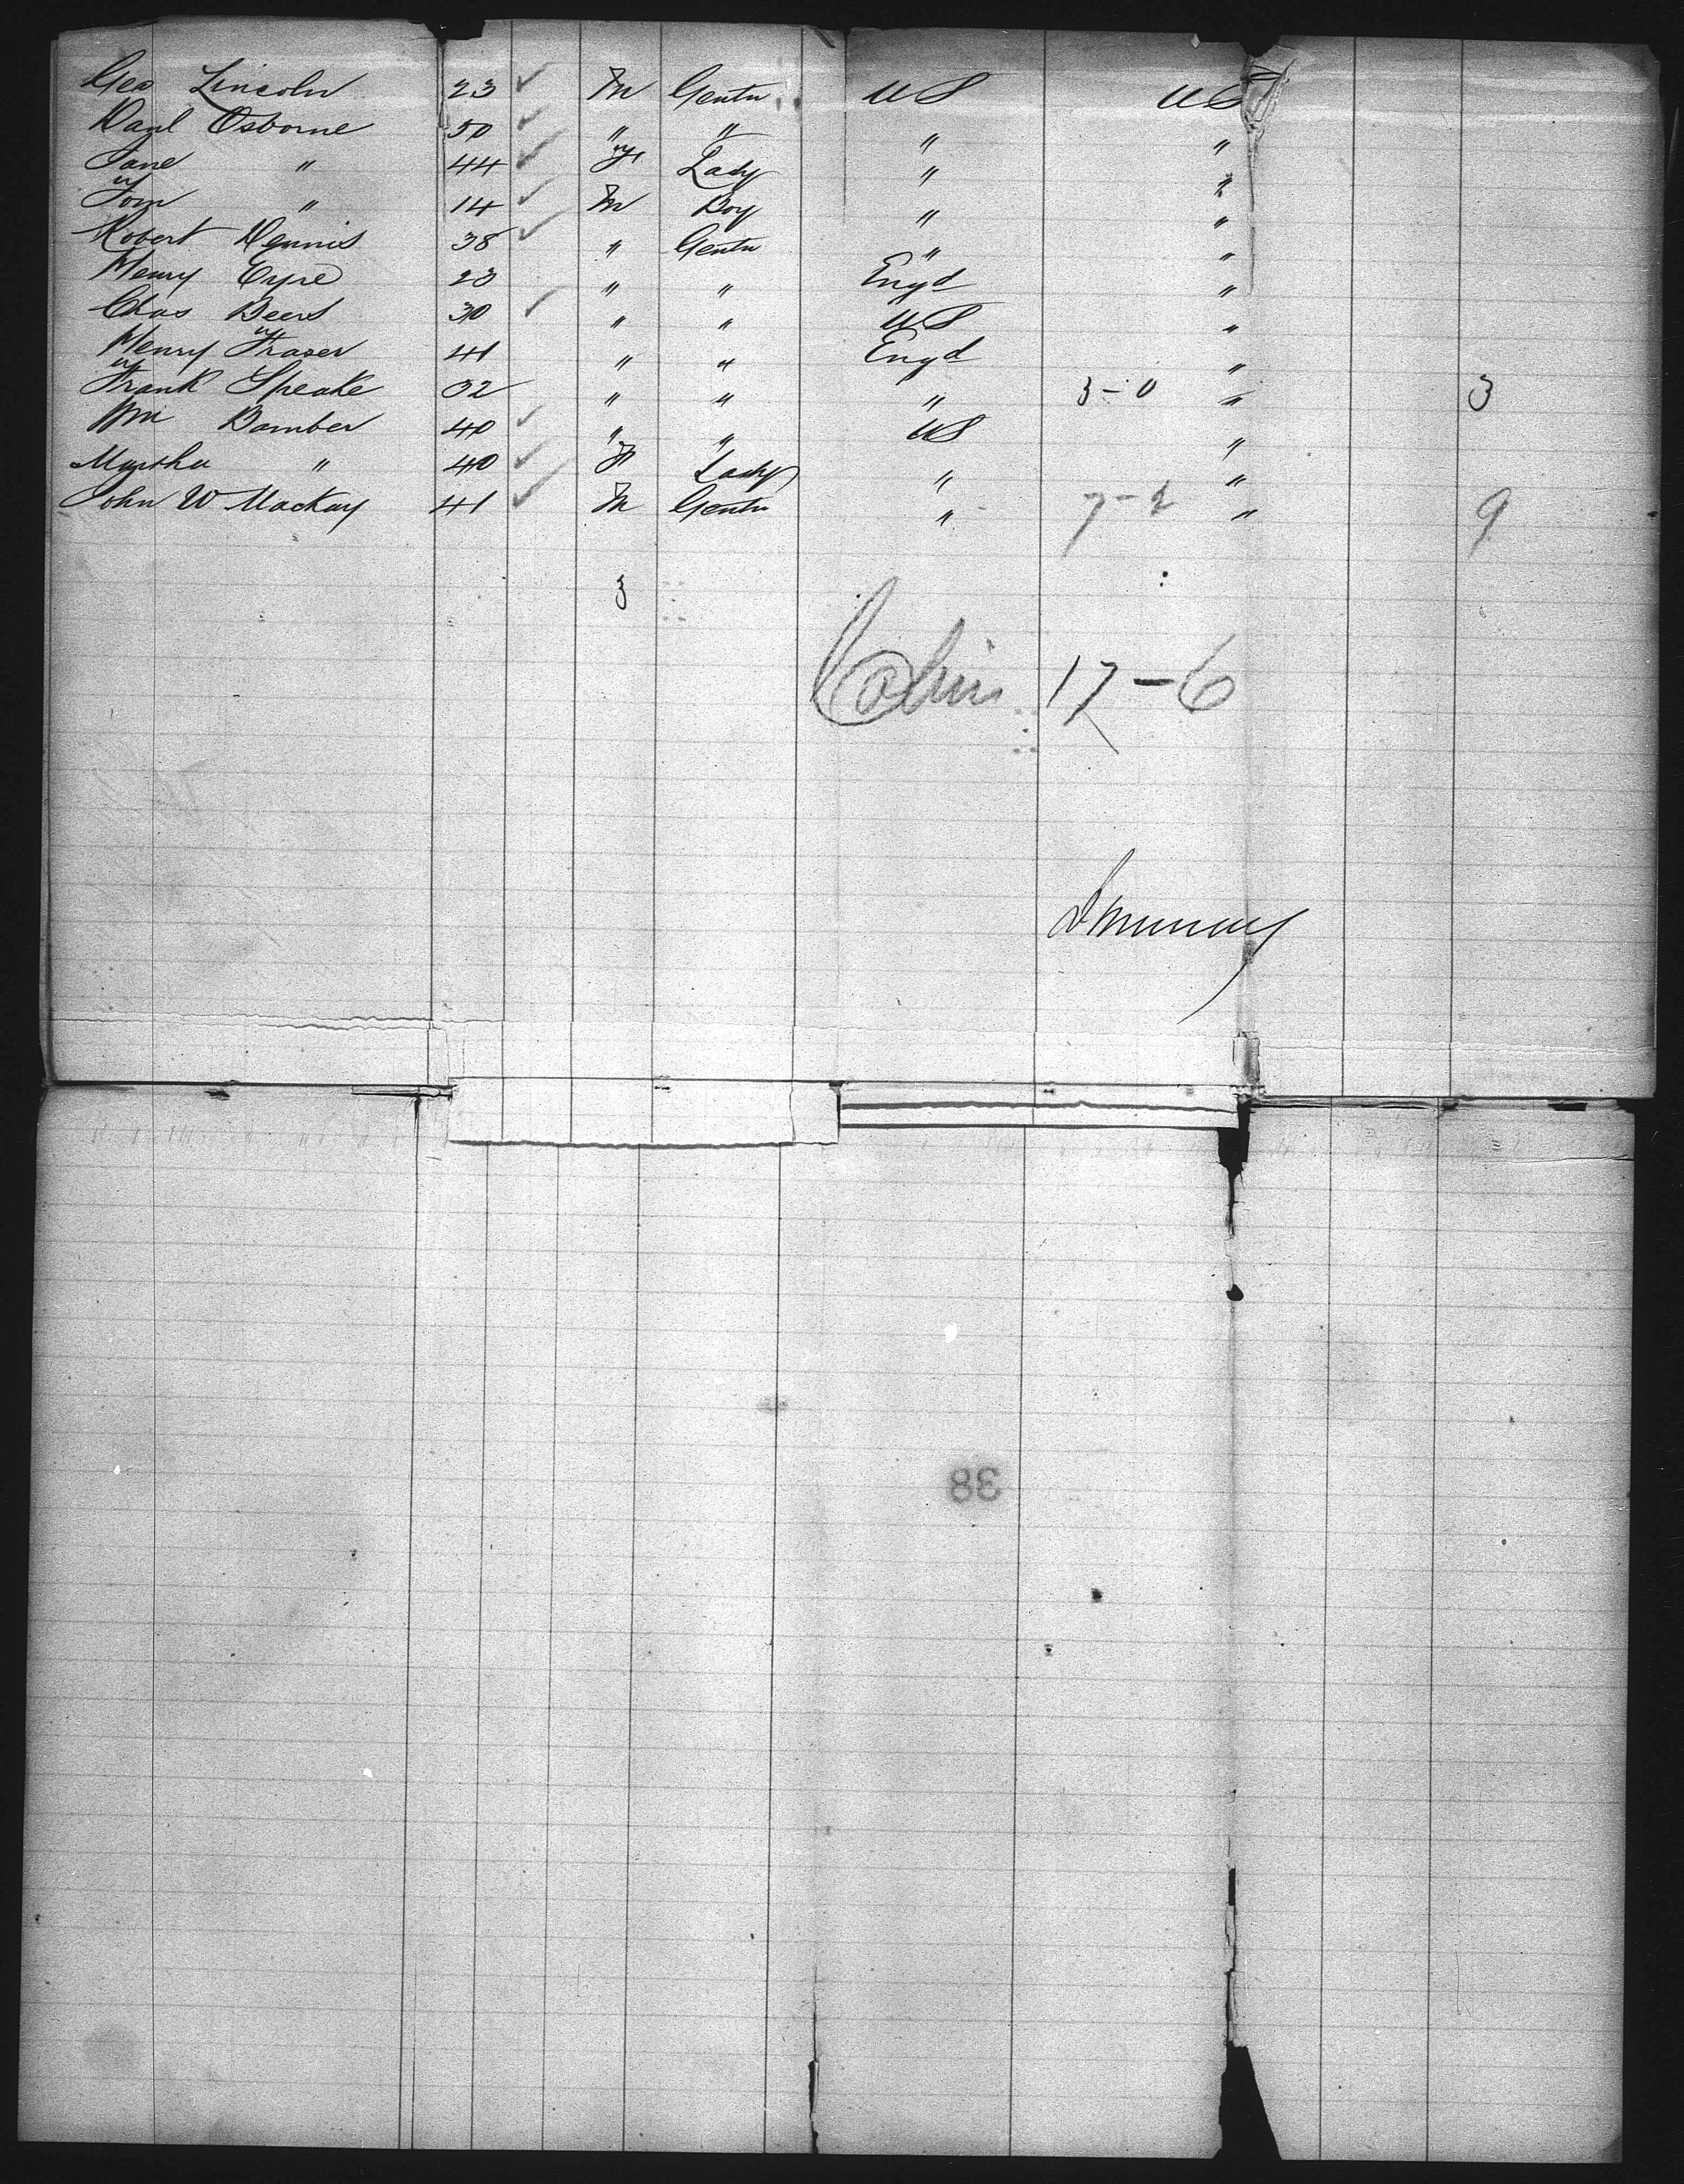 Geo Lincoln 23 ✓ M Gentn US US
Danl Osborne 50 ✓ " " " "
Jane " 44 ✓ F Lady " "
Tom " 14 ✓ M Boy " "
Robert Dennis 38 ✓ " Gentn " "
Henry Eyre 23 " " Engd "
Chas Beers 30 ✓ " " US "
Henry Fraser 41 " " Engd "
Frank Speake 32 " " " 3-0 " 3
Wm Bamber 40 ✓ " " US "
Martha " 40 ✓ F Lady " "
John W Mackay 41 ✓ M Gentn " 7-2 " 9
3
Cabin 17-6
38